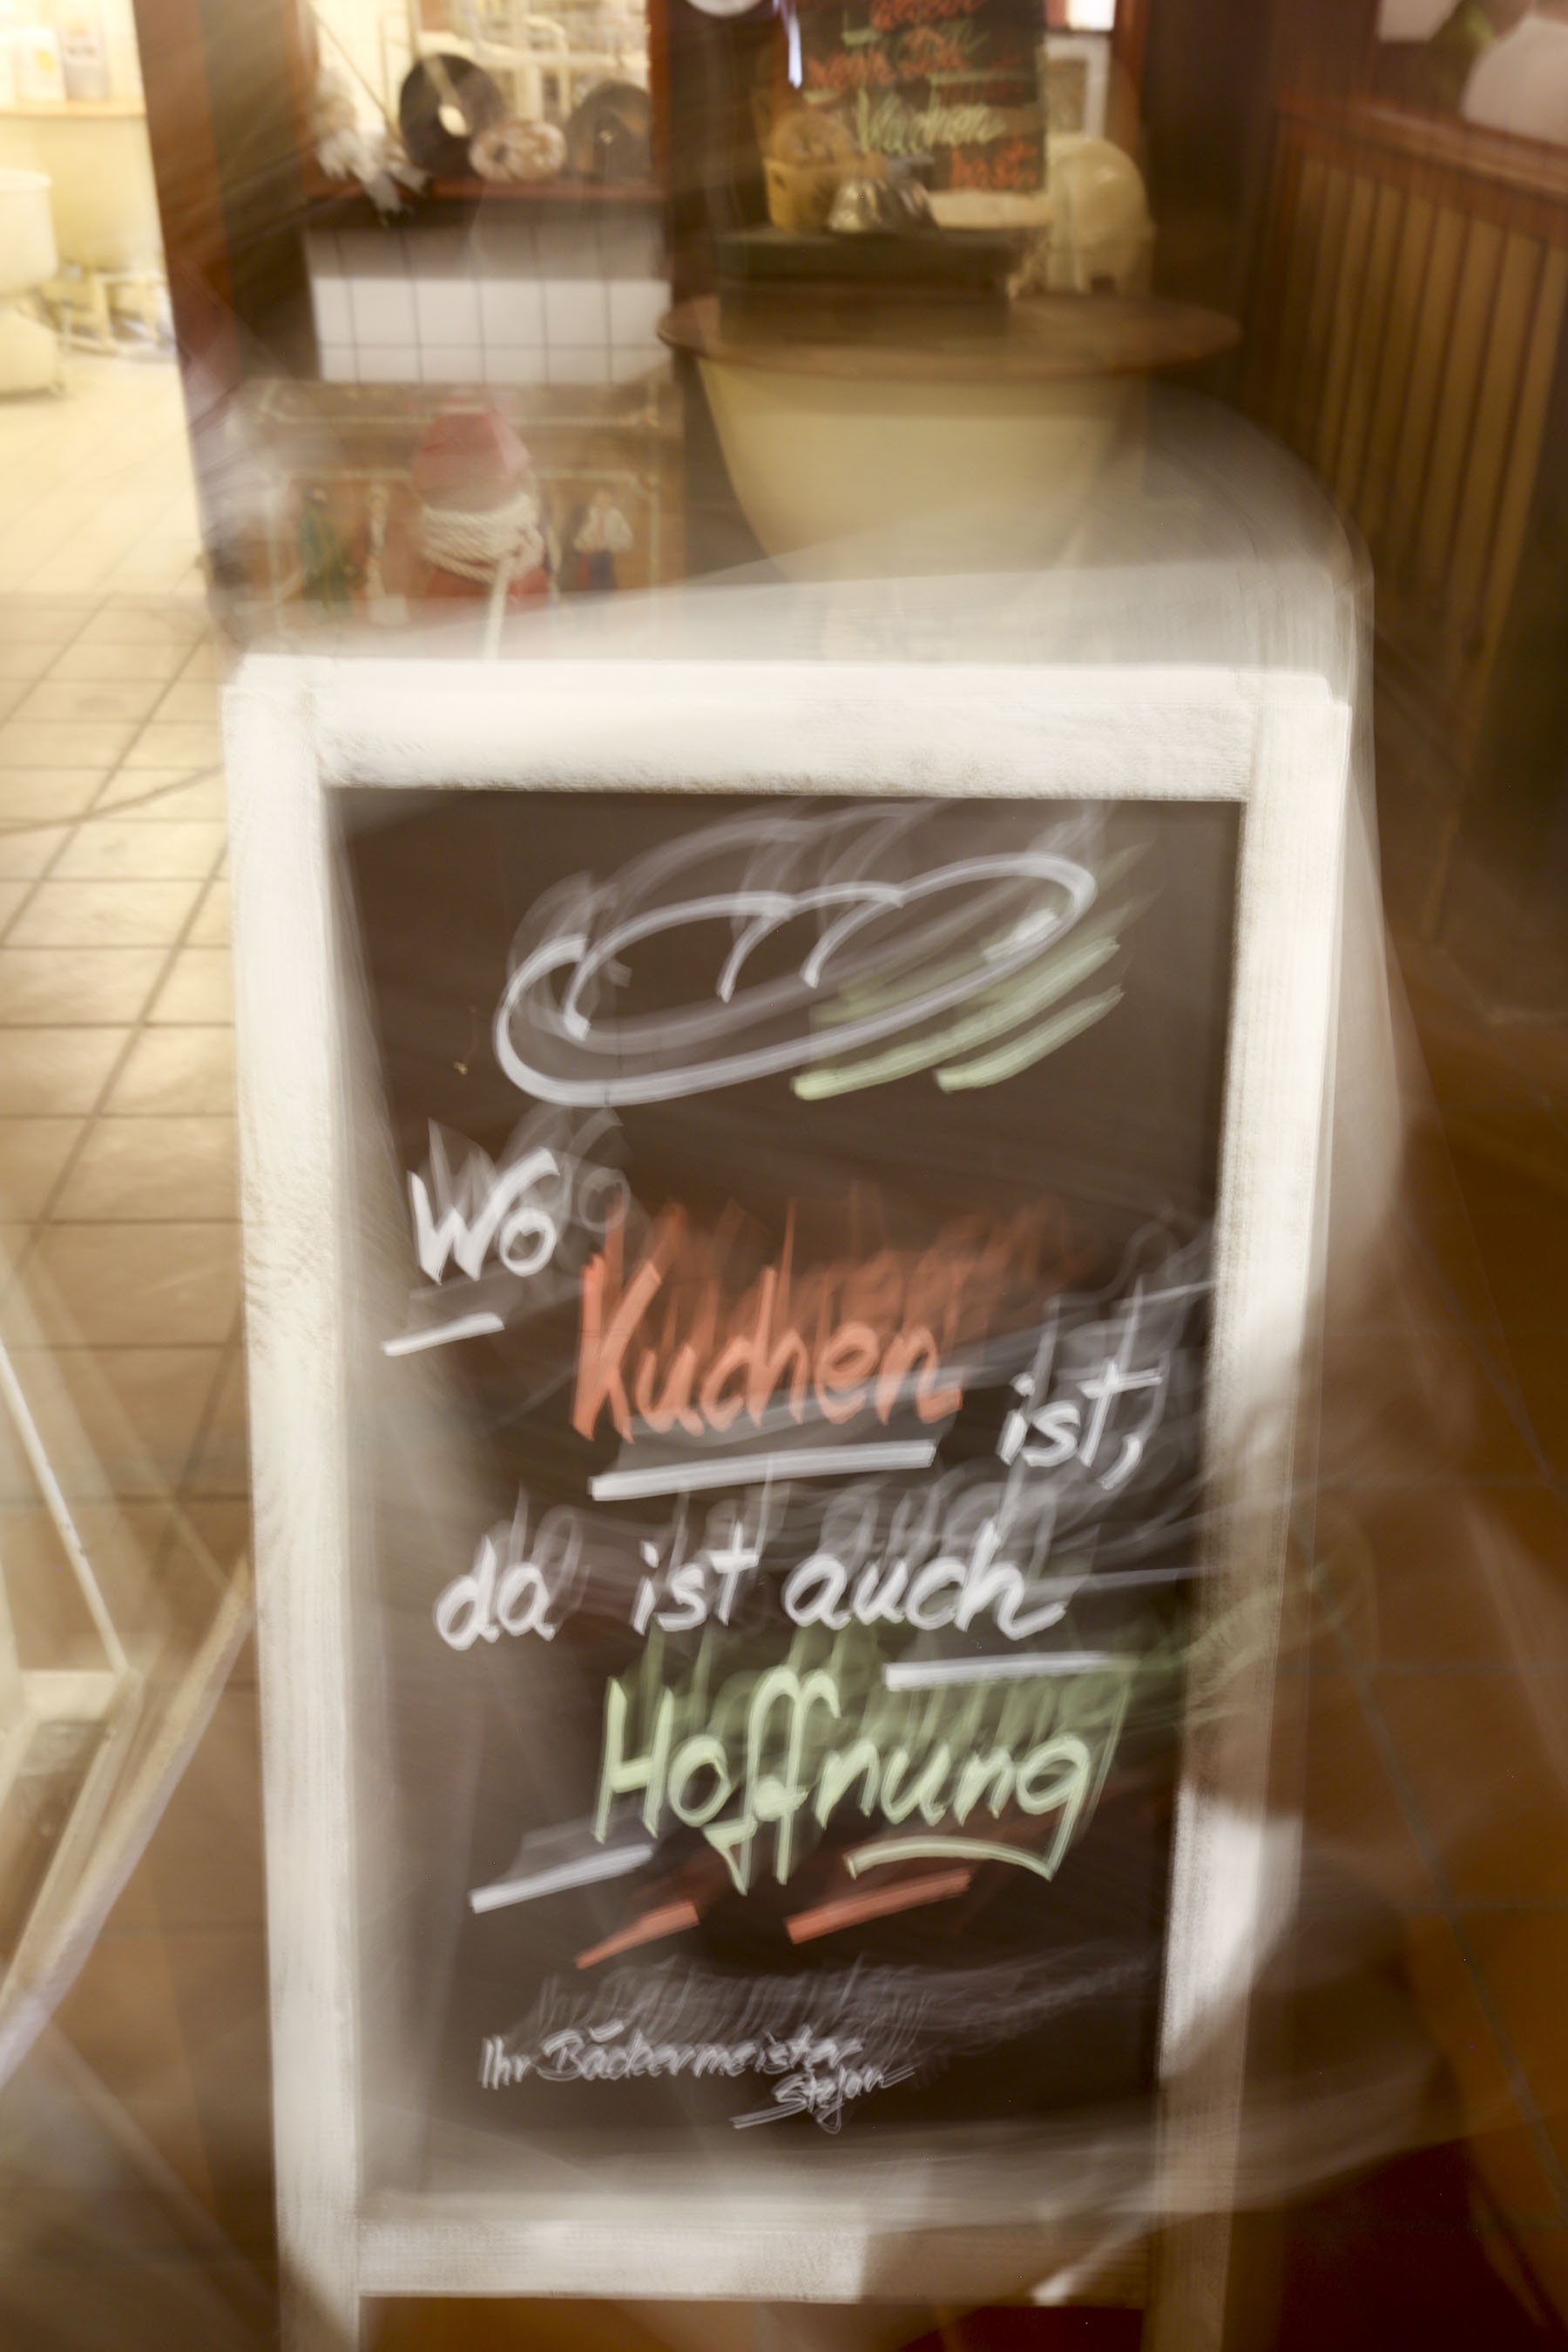 Kuchen
Wo
Kuchen ist,
da ist auch
Hoffnung
Ihr Bäckermeister
Stefan